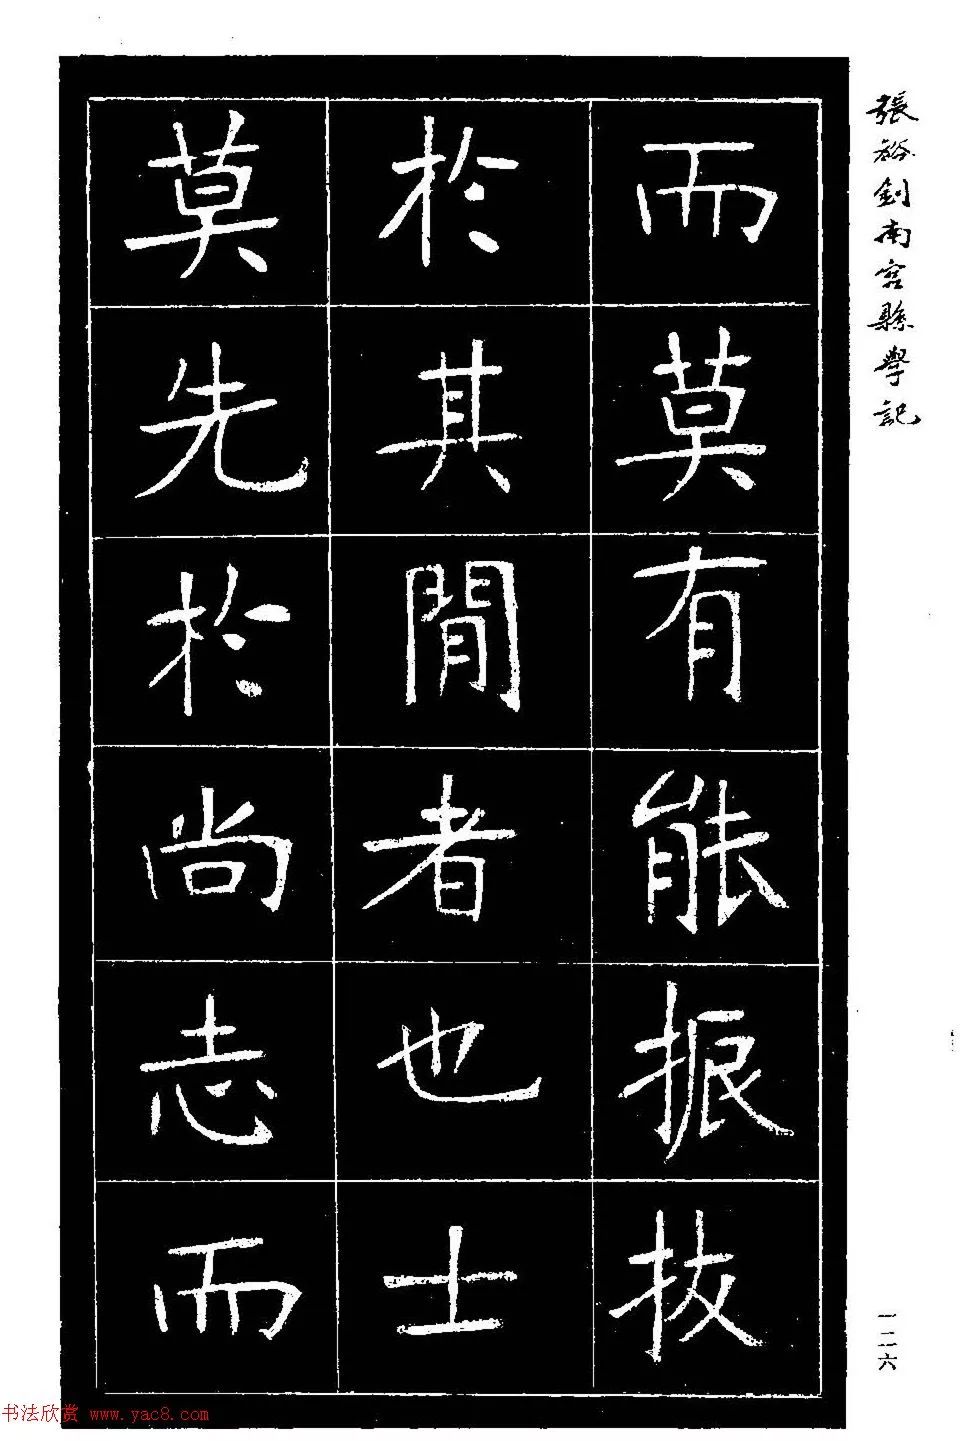 張裕釗南宮縣學記
而莫有能振拔
於其閒者也士
莫先於尚志而
一二六
书法欣赏 www.yac8.com